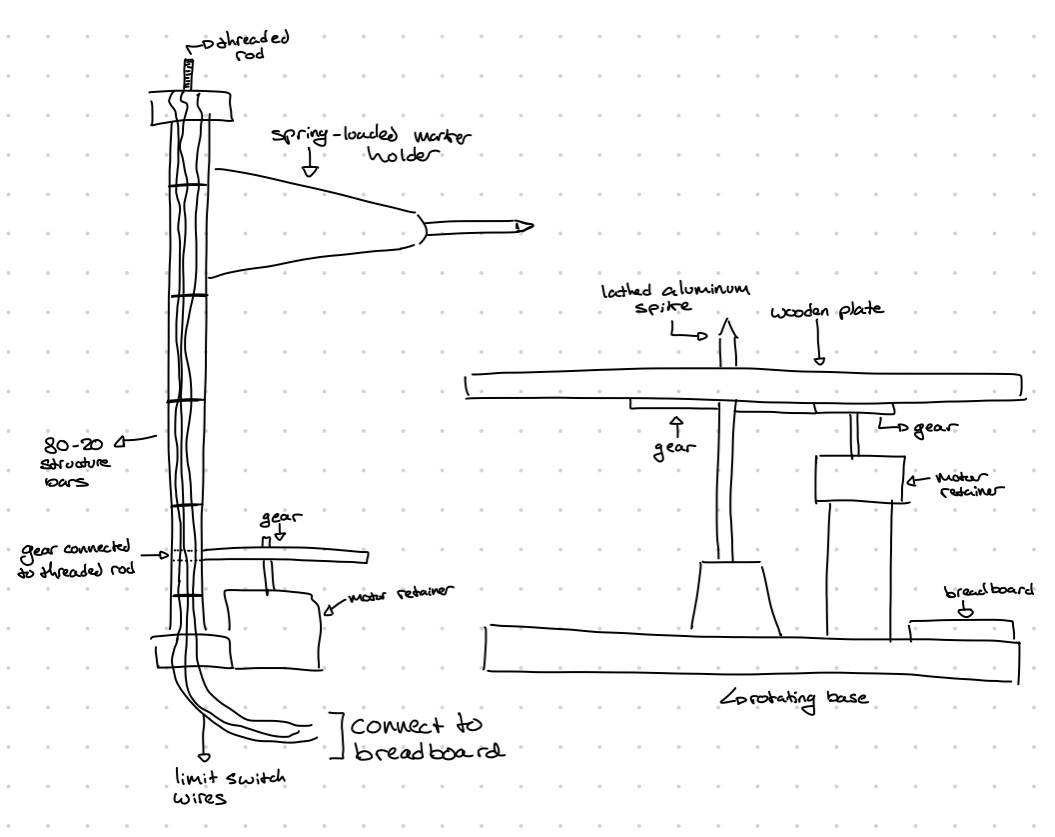 threaded
rod
spring-loaded marker
holder
80-20
structure
bars
gear connected
to threaded rod
gear
motor retainer
connect to
breadboard
limit switch
wires
lathed aluminum
spike
wooden plate
gear
gear
motor
retainer
breadboard
rotating base